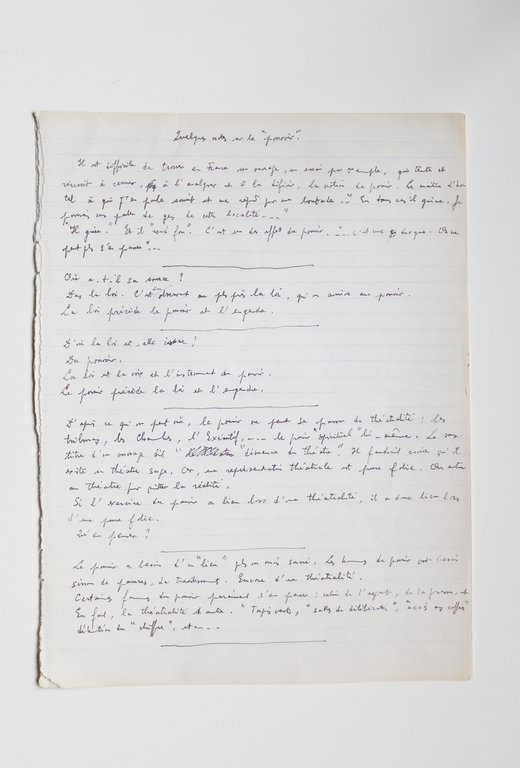 Quelques notes sur le "pouvoir".
Il est difficile de trouver en France un ouvrage, un essai par exemple, qui tente et
réussit à cerner, à l'analyser et à la définir, la notion de pouvoir. Le maître d'hô
tel à qui j'en parle sourit et me répond par une "En tous cas il grise. Je
pourrais vous parler de gens de cette localité...."
"Il grise." Et il "rend fou". C'est un des effets du pouvoir. "... c'est une drogue. On ne
peut plus s'en passer"...
Où a-t-il sa source ?
Dans la loi. C'est en au plus près la loi, qu'on arrive au pouvoir.
La loi précède le pouvoir et l'engendre.
D'où la loi est-elle issue ?
Du pouvoir.
La loi est la voix et l'instrument du pouvoir.
Le pouvoir précède la loi et l'engendre.
D'après ce qu'on peut voir, le pouvoir ne peut se passer de théâtralité : les
tribunes, les Chambres, l'Exécutif, .... le pouvoir spirituel lui-même. Le sous-
titre d'un ouvrage dit "démence du théâtre". Il faudrait croire qu'il
existe un théâtre sage. Or, une représentation théâtrale est pure folie. On entre
au théâtre pour la réalité.
Si l'exercice du pouvoir a lieu lors d'une théâtralité, il a donc lieu lors
d'une pure folie.
Qu'en penser ?
Le pouvoir a besoin d'un "lieu" plus ou moins sacré. Les hommes de pouvoir ont besoin
sinon de panaches, de traditions. Encore d'une théâtralité.
Certaines formes du pouvoir paraissent s'en passer : celui de l'argent, de la presse, etc
En fait, la théâtralité "Tapis verts", "salles de délibérations", "accès aux coffres"
du "chiffre", et....